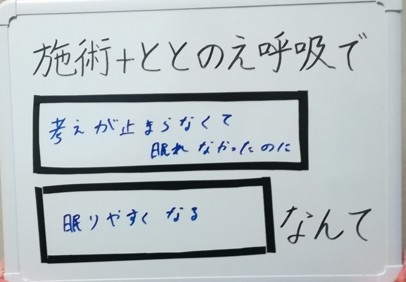 施術+ととのえ呼吸で
考えが止まらなくて
眠れなかったのに
眠りやすくなる
なんて